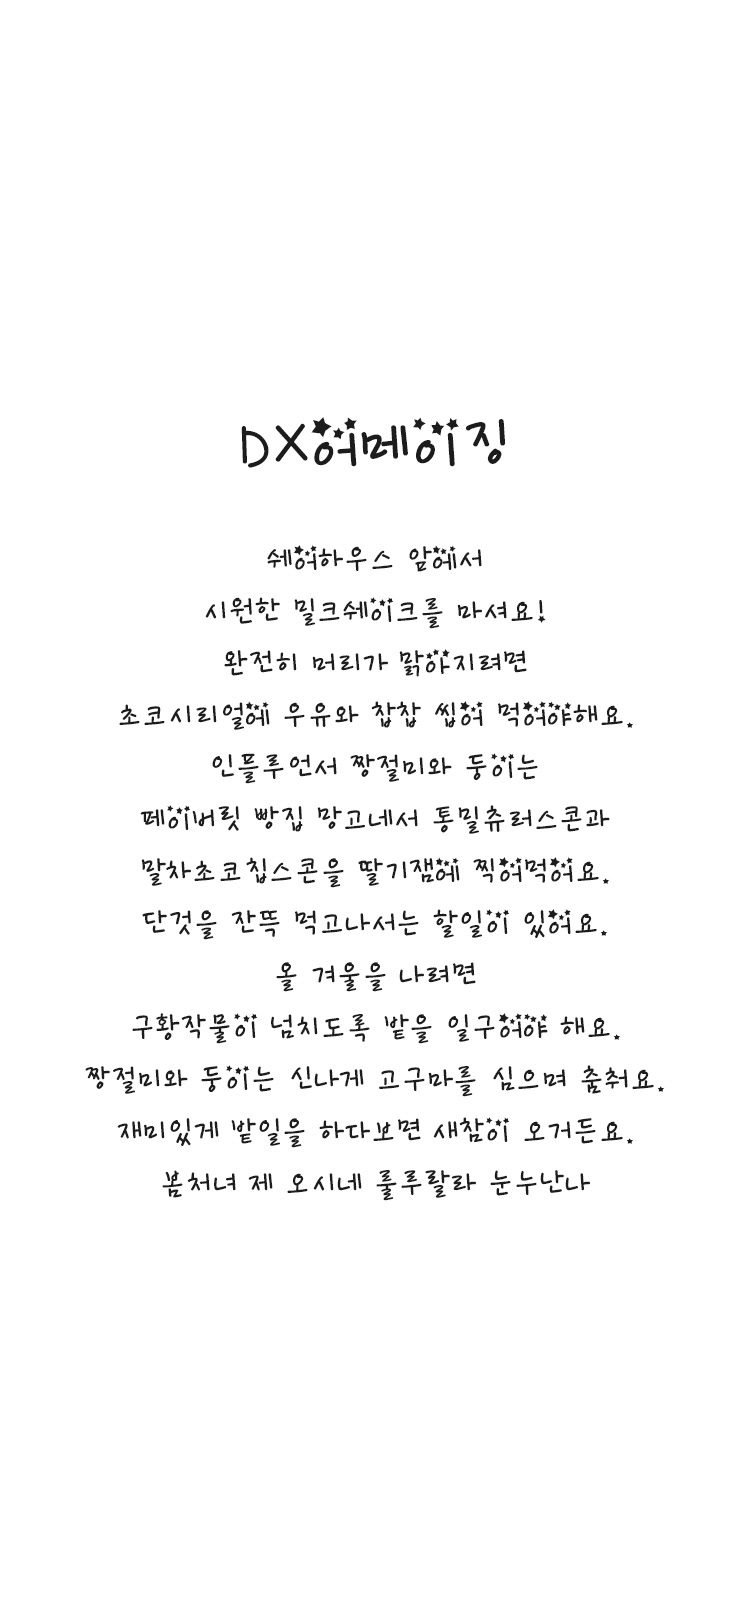 DX어메이징
쉐어하우스 앞에서
시원한 밀크쉐이크를 마셔요!
완전히 머리가 맑아지려면
초코시리얼에 우유와 찹찹 씹어 먹어야해요.
인플루언서 짱절미와 둥이는
페이버릿 빵집 망고네서 통밀츄러스콘과
말차초코칩스콘을 딸기잼에 찍어먹어요.
단것을 잔뜩 먹고나서는 할일이 있어요.
올 겨울을 나려면
구황작물이 넘치도록 밭을 일구어야 해요.
짱절미와 둥이는 신나게 고구마를 심으며 춤춰요.
재미있게 밭일을 하다보면 새참이 오거든요.
봄처녀 제 오시네 룰루랄라 눈누난나